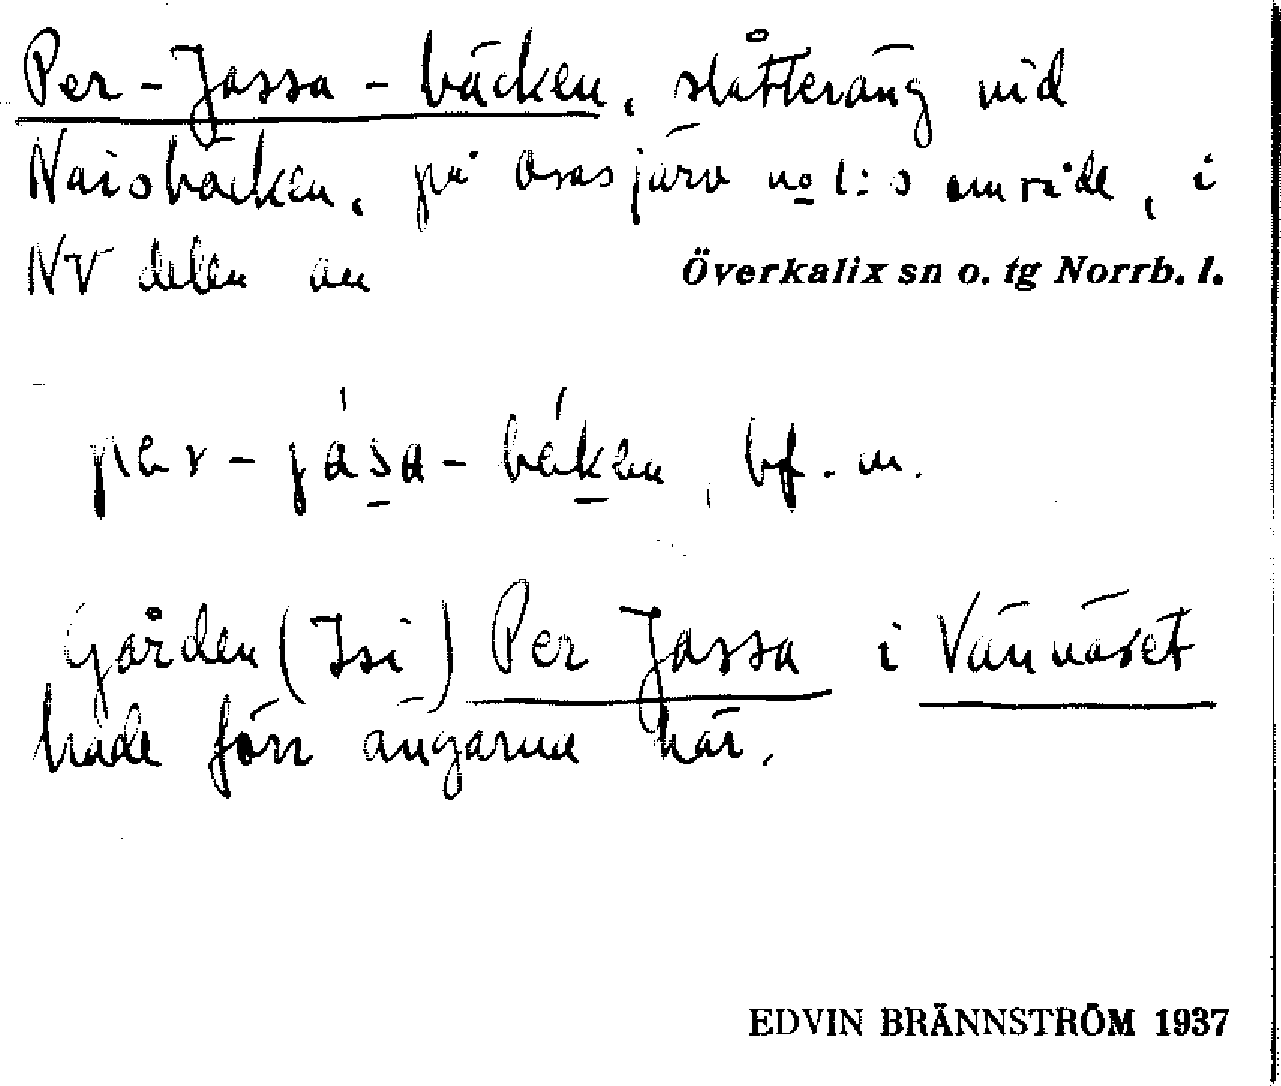 Per-Jassa-bäcken, slåtteräng vid
Naisbäcken, på Åsasjärv no 1:s område, i
NV delen av Överkalix sn o. tg Norrb. l.
per-jása-bäken, bf. m.
Gården (Isi) Per Jassa i Vännäset
hade förr ängarna här.
EDVIN BRÄNNSTRÖM 1937